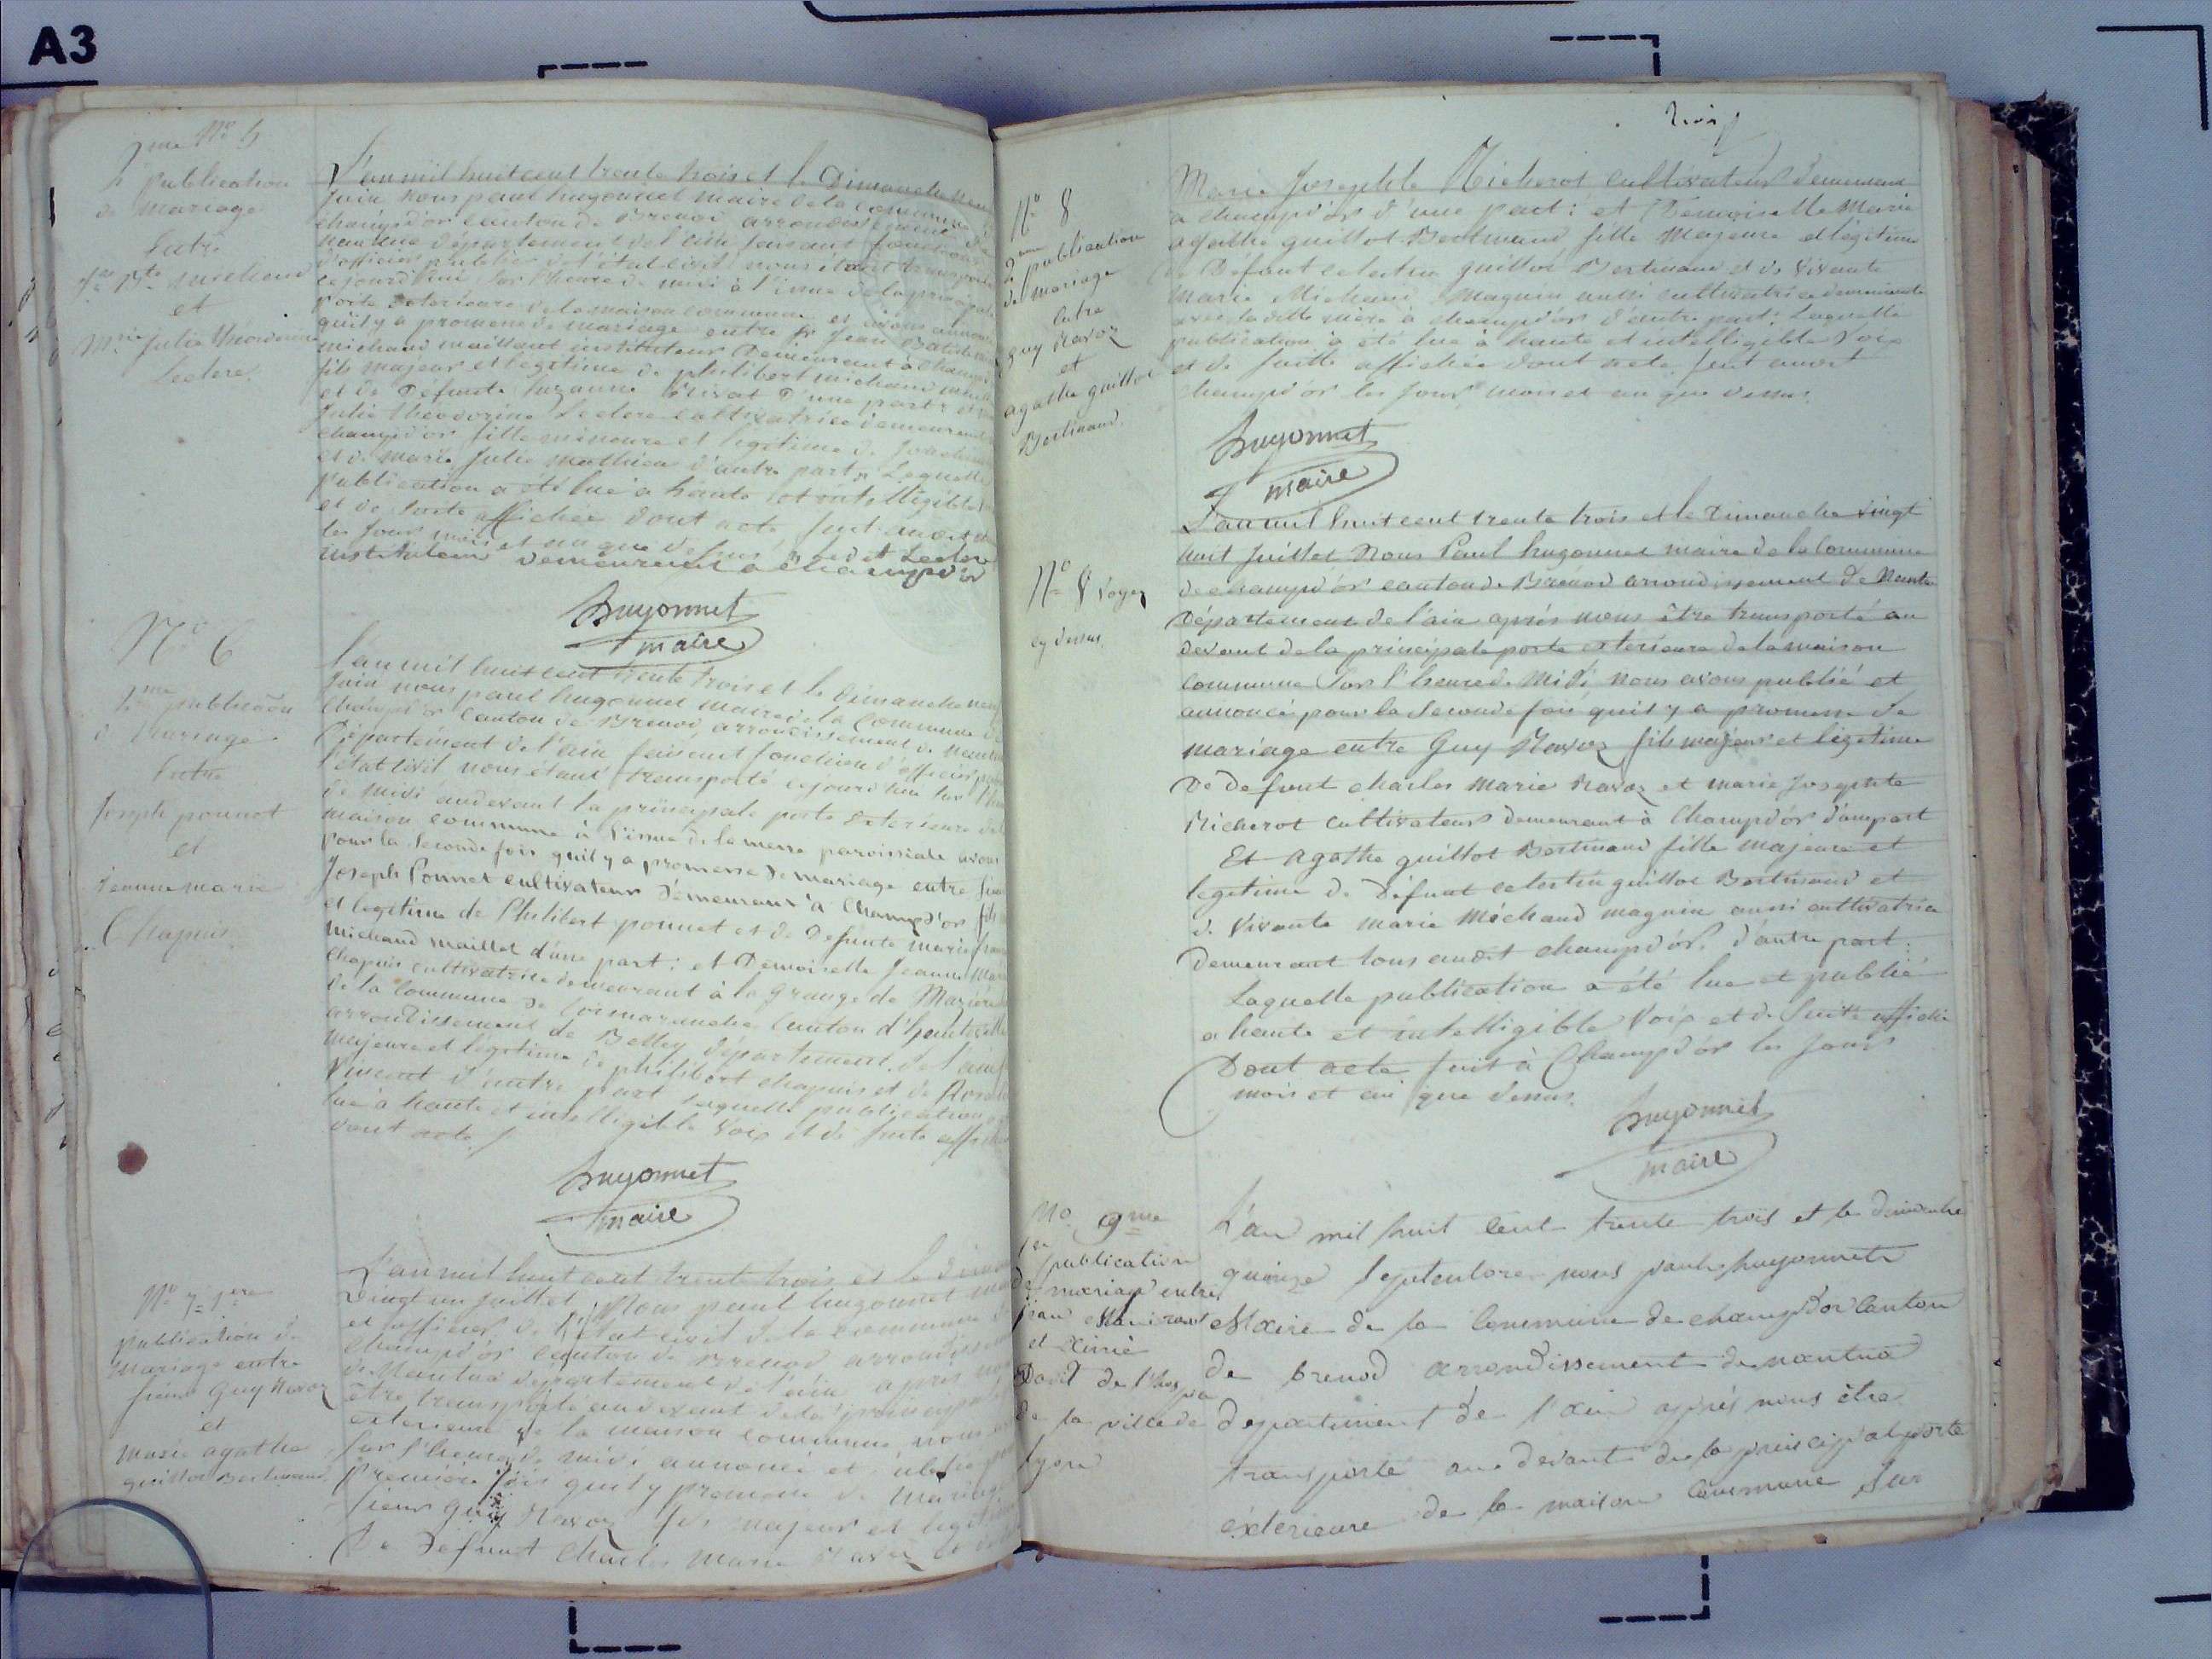 A3
N° 5
2me
publication
de mariage
Entre
et
Mie Julie théodorine
Leclerc.
L'an mil huit cent trente trois et le Dimanche neuf
Juin nous paul hugonnet maire de la commune de
champd'or canton de Brenod arrondissement de
nantua département de l'ain faisant fonctions
d'officier public de l'état civil nous étant transporté
cejourd'hui sur l'heure de midi à l'issue de la principale
porte exterieure de la maison commune et avons annoncé
qu'il y a promesse de mariage entre Sr Jean Batiste
michaud maillant instituteur demeurant à Champd'or
fils majeur et légitime de philibert michaud
et de Défunte Suzanne d'une part: et
Julie théodorine Leclerc cultivatrice demeurant
champd'or fille mineure et légitime de
et de marie Julie mathieu d'autre part, Laquelle
publication a été lue a haute et intelligible
et de suite affichée dont acte fait audit
les jour mois et an que dessus
instituteur demeurant a champd'or
hugonnet
maire
N° 6
2me publication
de Mariage
Entre
Joseph ponnet
et
Jeanne marie
Chapuis
L'an mil huit cent trente trois et le dimanche neuf
Juin nous paul hugonnet maire de la Commune de
Champd'or Canton de Brenod, arrondissement de nantua
Département de l'ain faisant fonction d'officier
l'état civil nous étant transporté cejourd'hui sur l'heure
de midi audevant la principale porte Exterieure de la
maison commune à l'issue de la messe paroissiale avons
pour la Seconde fois qu'il y a promesse de mariage entre
Joseph Ponnet cultivateur demeurant à Champd'or fils
et legitime de Philibert ponnet et de Defunte marie
michaud maillet d'une part: et Demoiselle Jeanne Marie
Chapuis cultivatrice demeurant à la grange de
de la Commune de Cormaranche Canton d'hauteville
arrondissement de Belley département de l'ain
majeure et legitime de philibert chapuis et de
Vincent d'autre part laquelle publication
lue à haute et intelligible Voix et de suite affichée
dont acte
hugonnet
maire
N° 7 1ere
publication de
mariage entre
sieur Guy Ravoz
et
Marie agathe
guillot Bertinand
L'an mil huit cent trente trois et le dimanche
vingt un Juillet, Nous paul hugonnet
et officier de l'Etat civil de la commune de
champd'or canton de Brenod arrondissement
de Nantua département de l'ain après nous
être transporté audevant de la principale
exterieure de la maison commune, nous
sur l'heure de midi annoncé et publié
première fois qu'il y promesse de Mariage
sieur guy Ravoz fils majeur et legitime
De Defunt Charles Marie Ravoz et de
trois
N° 8
2me
publication
de mariage
Entre
guy Ravoz
et
agathe guillot
Bertinand.
Marie Josephte Richerot cultivateur demeurant
a champd'or d'une part: et Demoiselle Marie
agathe guillot Bertinand fille Majeure et légitime
de Défunt celestin guillot Bertinand et de Vivante
Marie Michaud Magnin aussi cultivatrice demeurante
avec sa dite mère à champd'or d'autre part: Laquelle
publication à été lue à haute et intelligible Voix
et de suite affichée dont acte, fait audit
champd'or les Jour mois et an que dessus
hugonnet
maire
N° 8 Voyez
cy dessus.
L'an mil huit cent trente trois et le Dimanche Vingt
huit Juillet Nous Paul hugonnet maire de la Commune
de champd'or canton de Brenod arrondissement de Nantua
Département de l'ain après nous être transporté au
devant de la principale porte exterieure de la maison
commune Sur l'heure de Midi, nous avons publié et
annoncé pour la Seconde fois qu'il y a promesse de
mariage entre Guy Ravoz fils majeur et légitime
De defunt charles Marie Ravoz et marie Josephte
Richerot cultivateur demeurant à Champd'or d'unpart
Et Agathe guillot Bertinand fille majeure et
legitime de Défunt celestin guillot Bertinand et
de Vivante marie Michaud magnin aussi cultivatrice
Demeurant tous audit champd'or d'autre part.
Laquelle publication a été lue et publié
a haute et intelligible Voix et de Suite affiché
Dont acte fait à Champd'or les Jours
mois et an que dessus.
hugonnet
maire
No 9me
1re
publication
de mariage entre
jean
et
de la ville de
lyon
L'an mil huit cent trente trois et le dimanche
quinze septembre nous paul hugonnet
Maire de la Commune de champdor Canton
de brenod arrondissement de nantua
departement de l'ain après nous être
transporté au devant de la principal porte
éxterieure de la maison Commune Sur